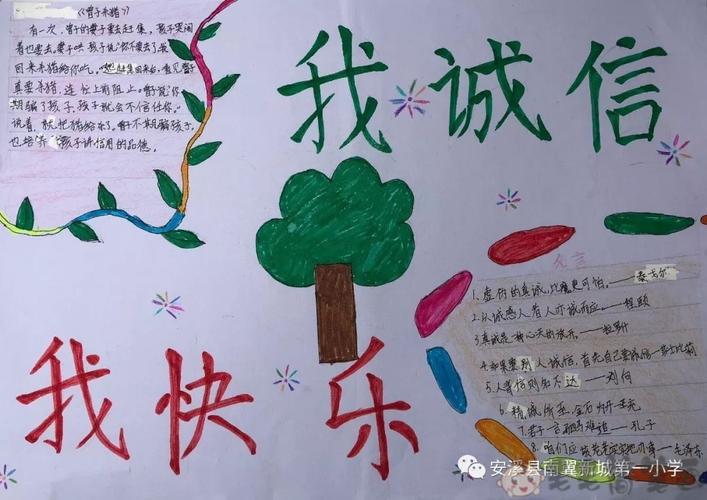 《曾子杀猪》
有一次，曾子的妻子要去赶集，孩子哭闹
着也要去，妻子哄孩子说"你不要去了，我
回来杀猪给你吃。"她赶集回来后，看见曾子
真要杀猪，连忙上前阻止。曾子说"你
欺骗了孩子，孩子就会不信任你。"
说着，就把猪给杀了。曾子不欺骗孩子，
也培养孩子讲信用的品德。
我诚信
我快乐
名言
1.虚伪的真诚，比魔鬼更可怕。——泰戈尔
2.以诚感人者人亦诚而应。——程颐
3.真诚是一种心灵的开放。——拉罗什
4.如果要别人诚信，首先自己要诚信——莎士比亚
5.人背信则名不达——刘向
6.精诚所至，金石为开——王充
7.君子一言驷马难追——孔子
8.咱们应 老老实实地办事——毛泽东
安溪县南翼新城第一小学